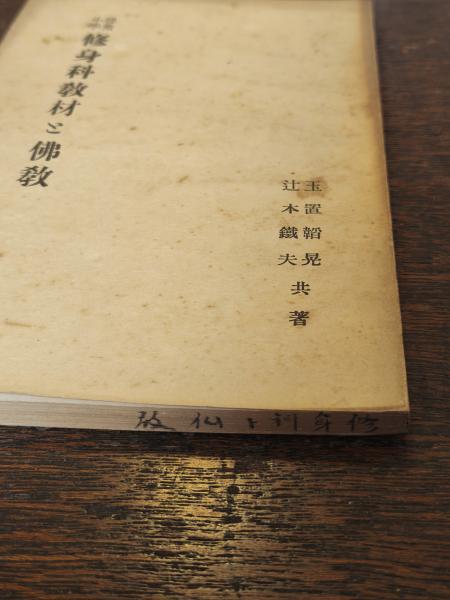 修身科教材と佛教
玉置韜晃
辻木鐵夫
共著
修身科ト仏教